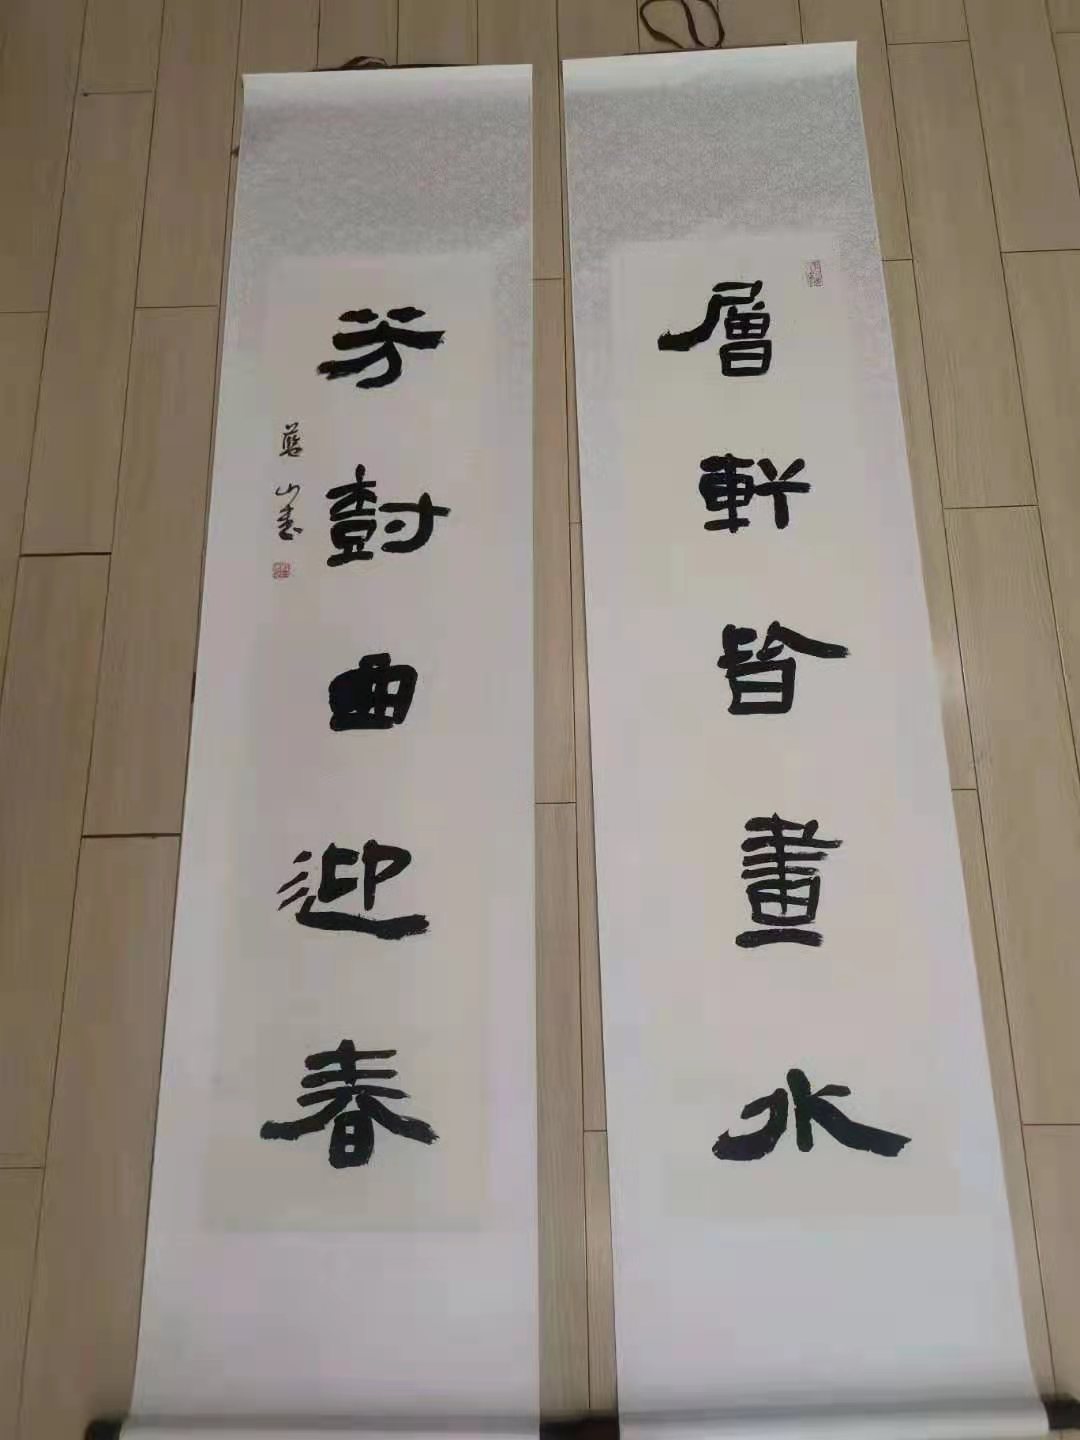 層軒皆畫水
芳尌曲迎春
藍山書